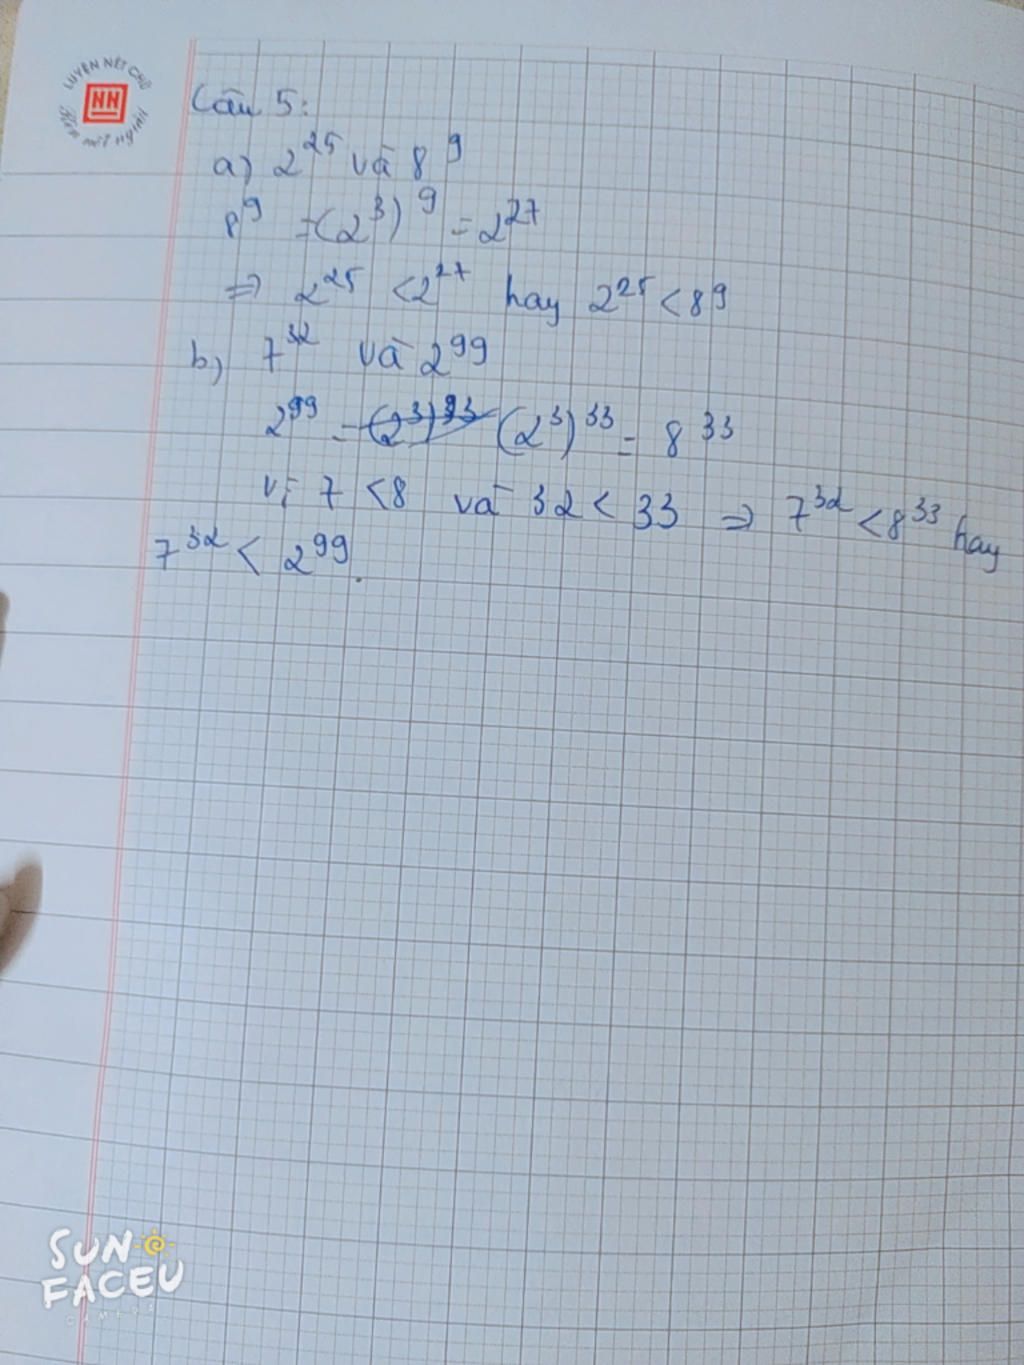 LUYỆN NÉT CHỮ
NN
Rèn nết người
Câu 5:
a) 2^25 và 8^9
8^9 = (2^3)^9 = 2^27
=> 2^25 < 2^27 hay 2^25 < 8^9
b) 7^32 và 2^99
2^99 = (2^3)^33 (2^3)^33 = 8^33
Vì 7 < 8 và 32 < 33 => 7^32 < 8^33 hay
7^32 < 2^99.
SUN
FACEU
CAMERA